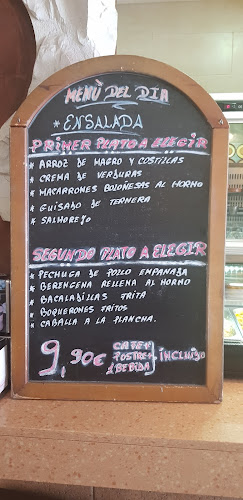 MENÙ DEL DIA
* ENSALADA
PRIMER PLATO A ELEGIR
* ARROZ DE MAGRO Y COSTILLAS
* CREMA DE VERDURAS
* MACARRONES BOLOÑESAS AL HORNO
* GUISADO DE TERNERA
* SALMOREJO
SEGUNDO PLATO A ELEGIR
* PECHUGA DE POLLO EMPANADA
* BERENGENA RELLENA AL HORNO
* BACALADILLAS FRITA
* BOQUERONES FRITOS
* CABALLA A LA PLANCHA.
9,90€
CAFE +
POSTRE +
1 BEBIDA
INCLUIDO